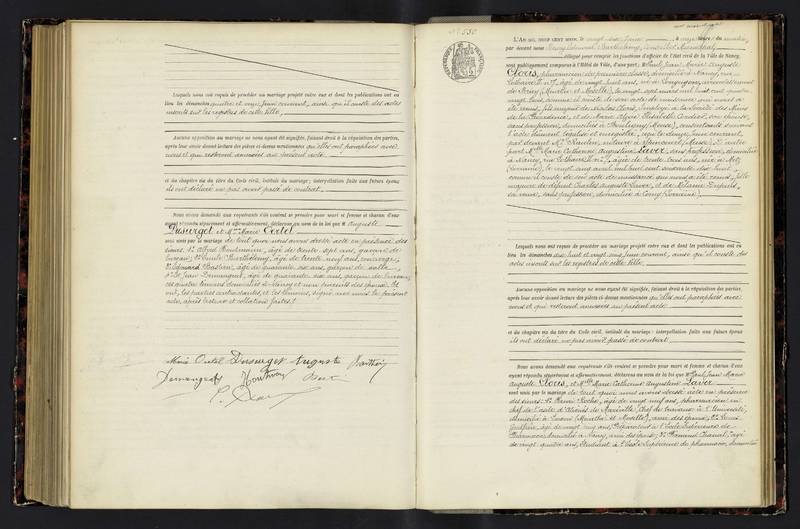 Lesquels nous ont requis de procéder au mariage projeté entre eux et dont les publications ont eu
lieu les dimanches quatre et onze Juin courant, ainsi qu'il conste des actes
inscrits sur les registres de cette ville.
Aucune opposition au mariage ne nous ayant été signifiée, faisant droit à la réquisition des parties,
après leur avoir donné lecture des pièces ci-dessus mentionnées qu'elles ont paraphées avec
nous et qui resteront annexées au présent acte
et du chapitre six du titre du Code civil, intitulé du mariage, interpellation faite aux futurs époux
ils ont déclaré ne pas avoir passé de contrat.
Nous avons demandé aux requérants s'ils veulent se prendre pour mari et femme et chacun d'eux
ayant répondu séparément et affirmativement, déclarons au nom de la loi que M. Auguste
Dusurget et Mlle Marie Oertel
sont unis par le mariage de tout quoi nous avons dressé acte en présence des
sieurs: 1° Alfred âgé de trente sept ans, garçon de
bureau; 2° Emile Barthélemy, âgé de trente neuf ans, concierge;
3° Edouard Bastien, âgé de quarante six ans, garçon de salle
4° et Jean Demangeot, âgé de quarante six ans, garçon de bureau,
ces quatre témoins domiciliés à Nancy et non parents des époux. Et
ont, les parties contractantes et les témoins, signé avec nous le présent
acte, après lecture et collation faites.
Marie Oertel Dusurget Auguste
Demangeot
N° 530
L'AN MIL NEUF CENT ONZE, le vingt six Juin, à onze heures du matin,
par devant nous Barthélemy, Conseiller Municipal,
délégué pour remplir les fonctions d'officier de l'état civil de la Ville de Nancy,
sont publiquement comparus à l'Hôtel de Ville, d'une part: M. Paul Jean Marie Auguste
Cloris, pharmacien de première classe, domicilié à Nancy, rue
âgé de vingt huit ans, né à
de Nancy (Meurthe et Moselle), le vingt sept mars mil huit cent quatre
vingt trois, comme il conste de son acte de naissance qui nous a
été remis, fils majeur de Nicolas Cloris, employé à la Société des Mines
de la et de Marie Elisabeth son épouse,
sans profession, domiciliés à (Meuse), consentants suivant
l'acte dûment légalisé et enregistré, reçu le douze Juin courant,
par devant Me notaire à (Meuse). Et d'autre
part: Mlle Marie Catherine Augustine Laver, sans profession, domiciliée
à Nancy, rue âgée de trente trois ans, née à Metz
(Lorraine), le vingt cinq avril mil huit cent soixante dix huit,
comme il conste de son acte de naissance qui nous a été remis, fille
majeure de défunt Charles Auguste Laver, et de
sa veuve, sans profession, domiciliée à (Lorraine).
Lesquels nous ont requis de procéder au mariage projeté entre eux et dont les publications ont eu
lieu les dimanches dix huit et vingt cinq Juin courant, ainsi qu'il conste des
actes inscrits sur les registres de cette ville.
Aucune opposition au mariage ne nous ayant été signifiée, faisant droit à la réquisition des parties,
après leur avoir donné lecture des pièces ci-dessus mentionnées qu'elles ont paraphées avec
nous et qui resteront annexées au présent acte
et du chapitre six du titre du Code civil, intitulé du mariage, interpellation faite aux futurs époux
ils ont déclaré ne pas avoir passé de contrat.
Nous avons demandé aux requérants s'ils veulent se prendre pour mari et femme et chacun d'eux
ayant répondu séparément et affirmativement, déclarons au nom de la loi que M. Paul Jean Marie
Auguste Cloris, et Mlle Marie Catherine Augustine Laver
sont unis par le mariage de tout quoi nous avons dressé acte en présence
des sieurs: 1° Roche, âgé de vingt neuf ans, pharmacien en
chef de l'asile d'aliénés de Maréville, Chef de travaux à l'Université,
domicilié à Laxou (Meurthe et Moselle), ami des époux; 2° Louis
âgé de vingt cinq ans, Préparateur à l'Ecole Supérieure de
Pharmacie, domicilié à Nancy, ami des époux; 3° Fernand âgé
de vingt quatre ans, Etudiant à l'Ecole Supérieure de pharmacie,